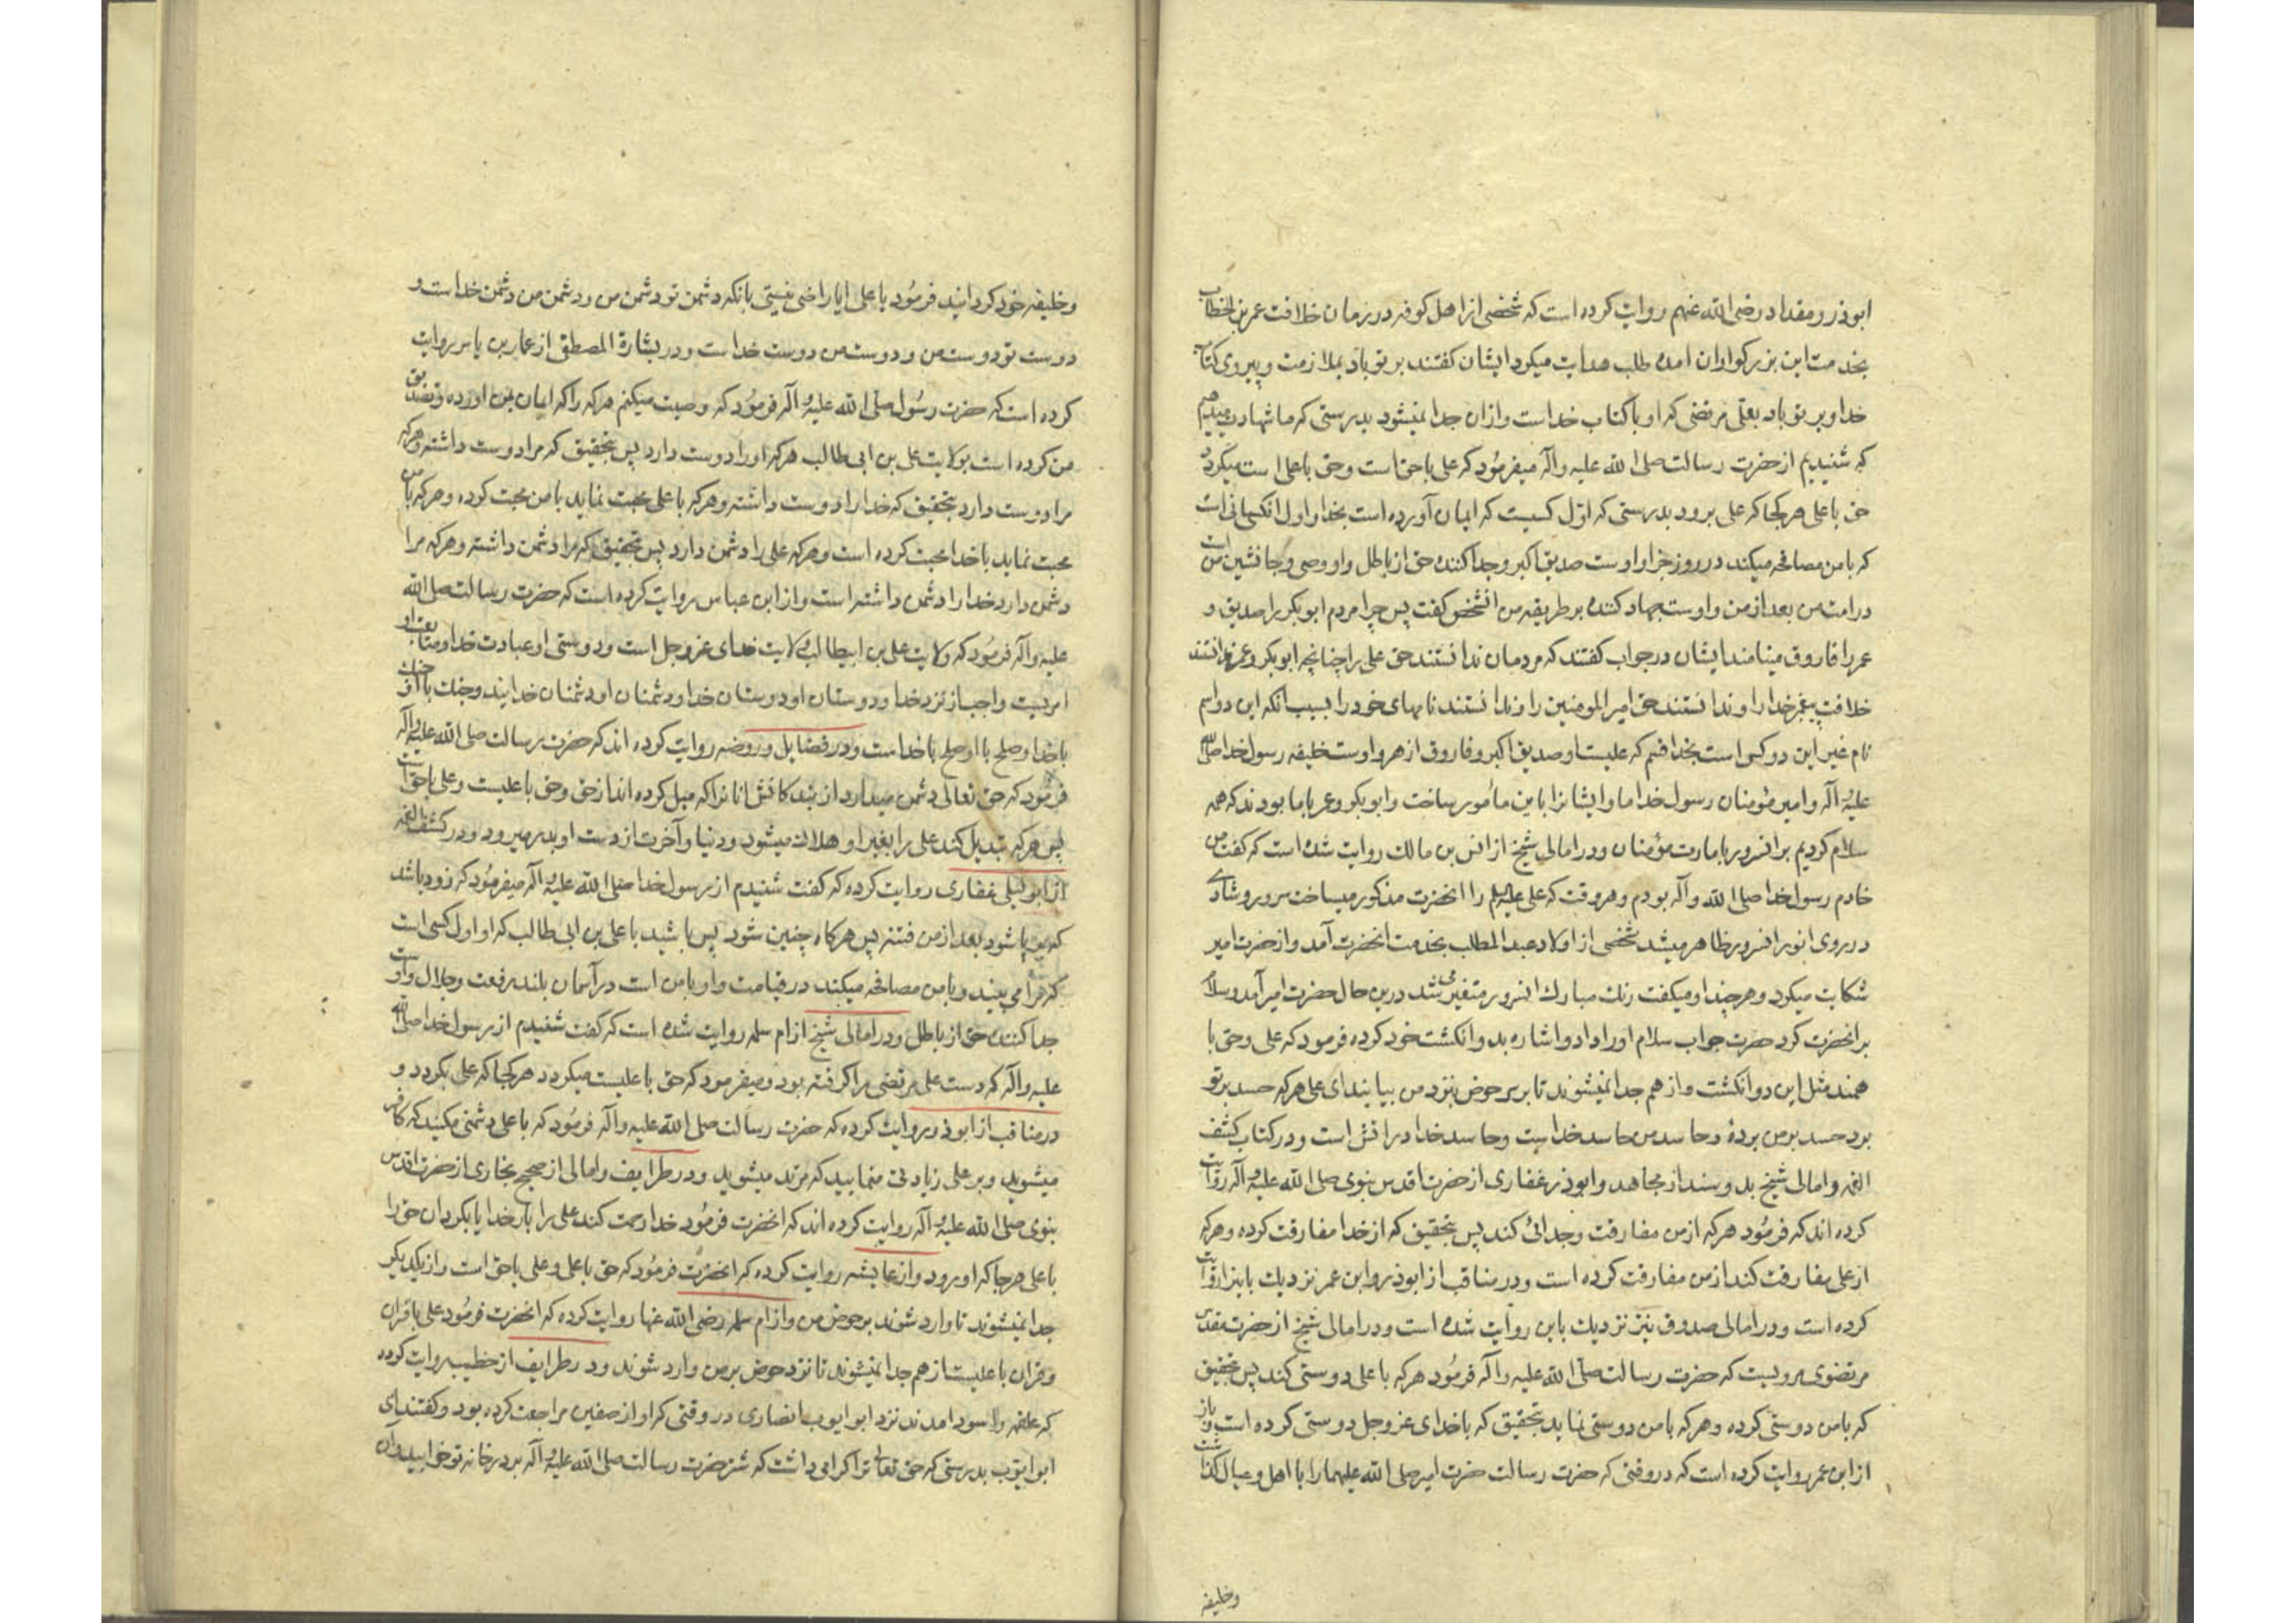 ابوذر و مقداد رضی الله عنهم روایت کرده است که شخصی از اهل کوفه در زمان خلافت عمر بن الخطاب
بخدمت این بزرکواران امده طلب هدایت میکرد ایشان کفتند بر تو باد بملازمت و پیروی کتاب
خدا و بر تو باد بعلی مرتضی که او با کتاب خداست و ازان جدا نمیشود بدرستی که ما شهادت میدهیم
که شنیدیم از حضرت رسالت صلی الله علیه و آله میفرمود که علی با حق است و حق با علی است میکردد
حق با علی هر کجا که علی برود بدرستی که اول کسیست که ایمان آورده است بخدا و اول انکسانی است
که با من مصافحه میکند در روز جزا و اوست صدیق اکبر و جدا کننده حق از باطل و او وصی و جانشین من است
در امت من بعد از من و اوست جهاد کننده بر طریقه من انشخص کفت پس چرا مردم ابوبکر را صدیق و
عمر را فاروق مینامند ایشان در جواب کفتند که مردمان ندانستند حق علی را چنانچه ابوبکر و عمر ندانستند
خلافت پیغمبر خدا را و ندانستند حق امیرالمومنین را و ندانستند نامهای خود را بسبب انکه این دو اسم
نام غیر این دو کس است بخدا قسم که علیست او صدیق اکبر و فاروق ازهر و اوست خلیفه رسول خدا صلی الله
علیه و آله و امیر مؤمنان رسول خدا ما و ایشانرا باین مأمور ساخت و ابوبکر و عمر با ما بودند که همه
سلام کردیم بر انسرور بامارت مؤمنان و در امالی شیخ از انس بن مالک روایت شده است که کفت من
خادم رسول خدا صلی الله و آله بودم و هر وقت که علی علیه السلم را انحضرت مذکور میساخت سرور و شادی
در روی انور انسرور ظاهر میشد شخصی از اولاد عبد المطلب بخدمت انحضرت آمد و از حضرت امیر
شکایت میکرد و هر چند او میکفت رنک مبارک انسرور متغیر می شد درین حال حضرت امیر آمد و سلام
بر انحضرت کرد حضرت جواب سلام او را داد و اشاره بدو انکشت خود کرده فرمود که علی و حق با
همند مثل این دو انکشت و از هم جدا نمیشوند تا بر سر حوض بنزد من بیایند ای علی هر که حسد بر تو
برد حسد بر من برده و حاسد من حاسد خداست و حاسد خدا در اتش است و در کتاب کشف
الغمه و امالی شیخ بدو سند از مجاهد و ابوذر غفاری از حضرت اقدس نبوی صلی الله علیه و آله روایت
کرده اند که فرمود هر که از من مفارقت و جدائی کند پس بتحقیق که از خدا مفارقت کرده و هر که
از علی مفارقت کند از من مفارقت کرده است و در مناقب از ابوذر و ابن عمر نزدیک باینرا روایت
کرده است و در امالی صدوق نیز نزدیک باین روایت شده است و در امالی شیخ از حضرت مقدس
مرتضوی مرویست که حضرت رسالت صلی الله علیه و آله فرمود هر که با علی دوستی کند پس بتحقیق
که با من دوستی کرده و هر که با من دوستی نماید بتحقیق که با خدای عز و جل دوستی کرده است و باز
از ابن عمر روایت کرده است که در وقتی که حضرت رسالت حضرت امیر صلی الله علیهما را با اهل و عیال کذاشت
و خلیفه
و خلیفه خود کردانید فرمود یا علی ایا راضی نیستی بانکه دشمن تو دشمن من و دشمن من دشمن خداست و
دوست تو دوست من و دوست من دوست خداست و در بشارة المصطفی از عمار بن یاسر روایت
کرده است که حضرت رسول صلی الله علیه و آله فرمود که وصیت میکنم هر که را که ایمان بمن اورده و تصدیق
من کرده است بولایت علی بن ابی طالب هر که او را دوست دارد پس بتحقیق که مرا دوست داشته و هر که
مرا دوست دارد بتحقیق که خدا را دوست داشته و هر که با علی محبت نماید با من محبت کرده و هر که با من
محبت نماید با خدا محبت کرده است و هر که علی را دشمن دارد پس بتحقیق که مرا دشمن داشته و هر که مرا
دشمن دارد خدا را دشمن داشته است و از ابن عباس روایت کرده است که حضرت رسالت صلی الله
علیه و آله فرمود که ولایت علی بن ابیطالب ولایت خدای عز و جل است و دوستی او عبادت خدا و متابعت او
امریست واجب از نزد خدا و دوستان او دوستان خدا و دشمنان او دشمنان خدایند و جنک با او جنک
با خدا و صلح با او صلح با خداست و در فضایل و روضه روایت کرده اند که حضرت رسالت صلی الله علیه و آله
فرمود که حق تعالی دشمن میدارد از بندکانش انانرا که میل کرده اند از حق و حق با علیست و علی با حق است
پس هر که تبدیل کند علی را بغیر او هلاک میشود و دنیا و آخرت از دست او بدر میرود و در کشف الغمه
از ابو لیلی غفاری روایت کرده که کفت شنیدم از رسول خدا صلی الله علیه و آله میفرمود که زود باشد
که بر پا شود بعد از من فتنه پس هر کاه چنین شود پس باشید با علی بن ابی طالب که او اول کسی است
که مرا می بیند و با من مصافحه میکند در قیامت و او با من است در آسمان بلند رفعت و جلال و اوست
جدا کننده حق از باطل و در امالی شیخ از ام سلمه روایت شده است که کفت شنیدم از رسول خدا صلی الله
علیه و آله که دست علی مرتضی را کرفته بود و میفرمود که حق با علیست میکردد هر کجا که علی بکردد و
در مناقب از ابوذر روایت کرده که حضرت رسالت صلی الله علیه و آله فرمود که با علی دشمنی مکنید که کافر
میشوید و بر علی زیادتی منمایید که مرتد میشوید و در طرایف و امالی از صحیح بخاری از حضرت اقدس
نبوی صلی الله علیه و آله روایت کرده اند که انحضرت فرمود خدا رحمت کند علی را بار خدایا بکردان حق را
با علی هر جا که او رود و از عایشه روایت کرده که انحضرت فرمود که حق با علی و علی با حق است و از یکدیکر
جدا نمیشوند تا وارد شوند بر حوض من و از ام سلمه رضی الله عنها روایت کرده که انحضرت فرمود علی با قران
و قران با علیست از هم جدا نمیشوند تا نزد حوض بر من وارد شوند و در طرایف از خطیب روایت کرده
که علقمه و اسود امدند نزد ابو ایوب انصاری در وقتی که او از صفین مراجعت کرده بود و کفتند ای
ابو ایوب بدرستی که حق تعالی ترا کرامی داشت که شتر حضرت رسالت صلی الله علیه و آله بر در خانه تو خوابید و ان